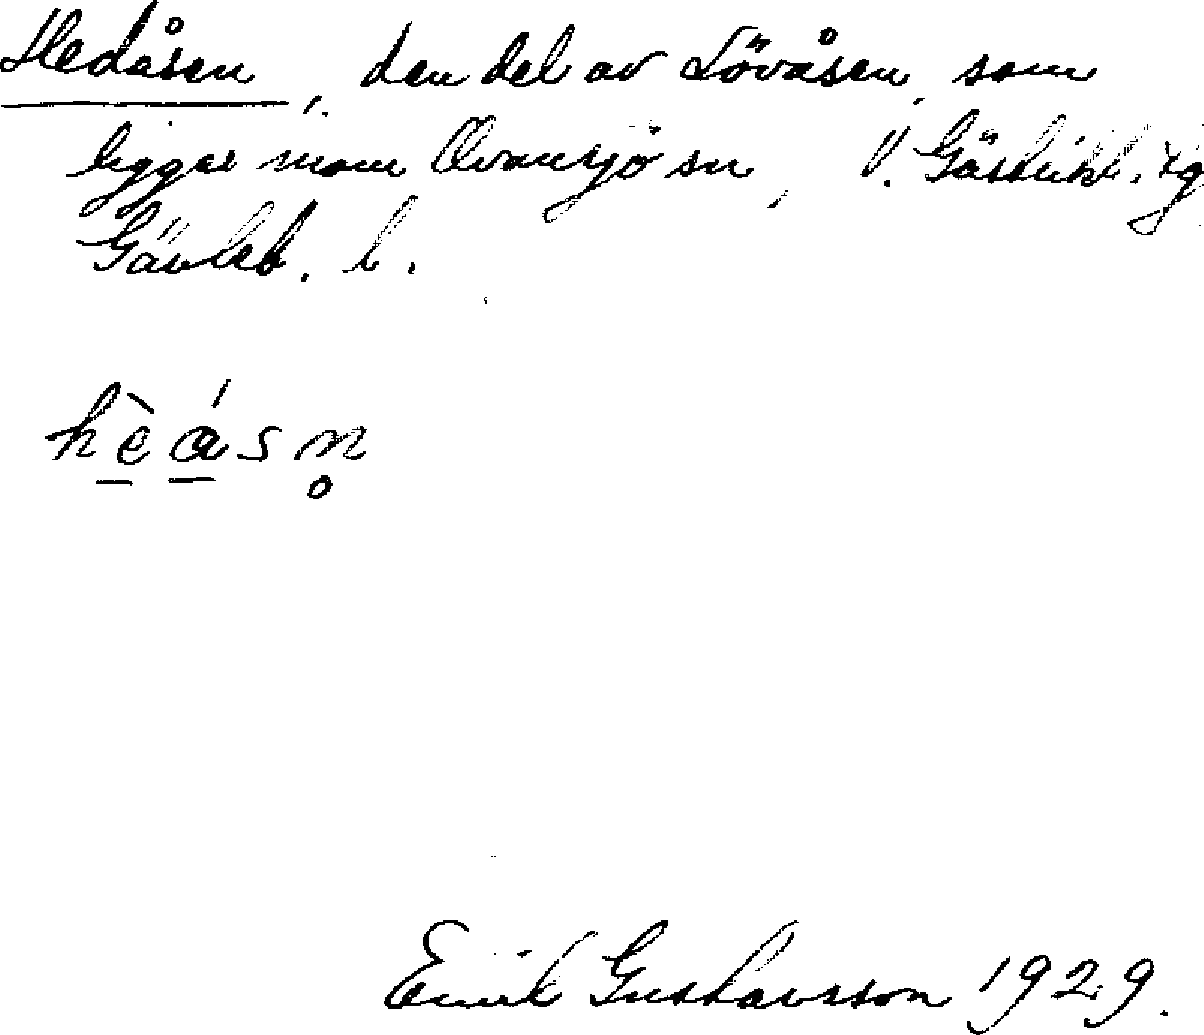 Hedåsen, den del av Lövåsen, som
ligger inom Ovansjö sn, V. Gästrikl. tg
Gävleb. l.
hèásn̥
Emil Gustavsson 1929.